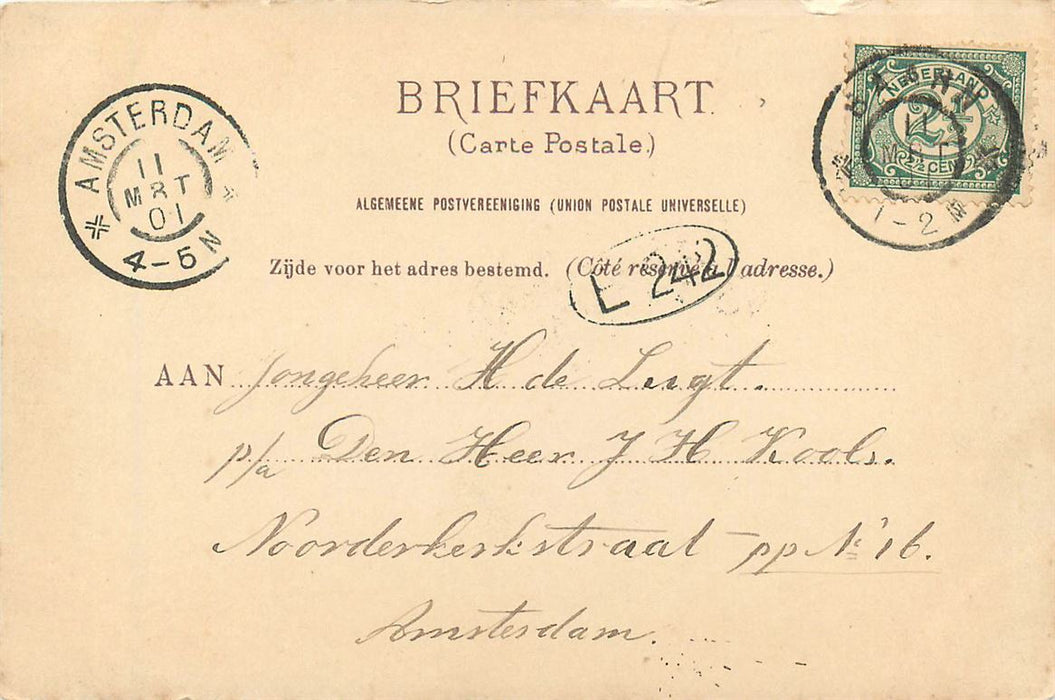 BRIEFKAART
(Carte Postale.)
ALGEMEENE POSTVEREENIGING (UNION POSTALE UNIVERSELLE)
Zijde voor het adres bestemd. (Côté réservé à l'adresse.)
AMSTERDAM
11
MRT
01
4-5 N
NEDERLAND
2½
2½ CENT
11
MRT
1-2 N
L 242
AAN Jongeheer H de Lugt.
p/a Den Heer J H Kools.
Noorderkerkstraat pp No 16.
Amsterdam.